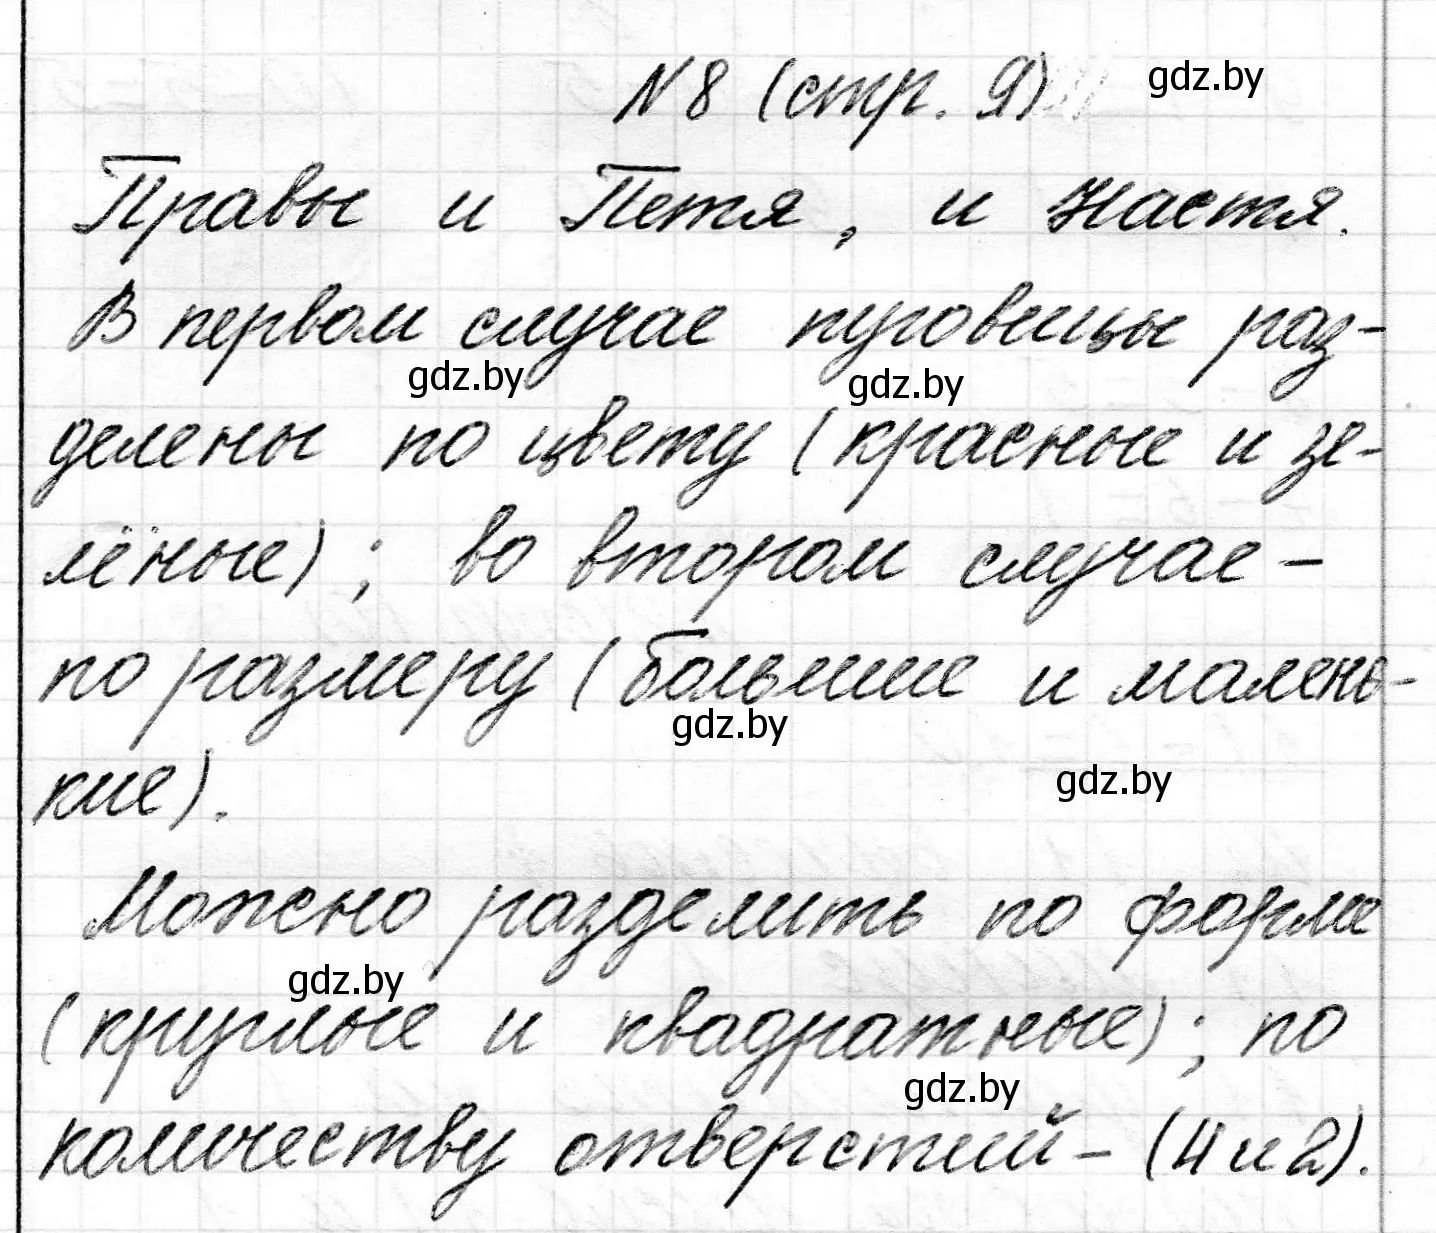 N 8 (стр. 9) gdz.by
Правы и Петя, и Настя.
В первом случае пуговицы раз-
gdz.by gdz.by
делены по цвету (красные и зе-
лёные); во втором случае -
по размеру (большие и малень-
gdz.by
gdz.by
кие).
Можно разделить по форме
gdz.by
(круглые и квадратные); по
gdz.by
количеству отверстий - (4 и 2).